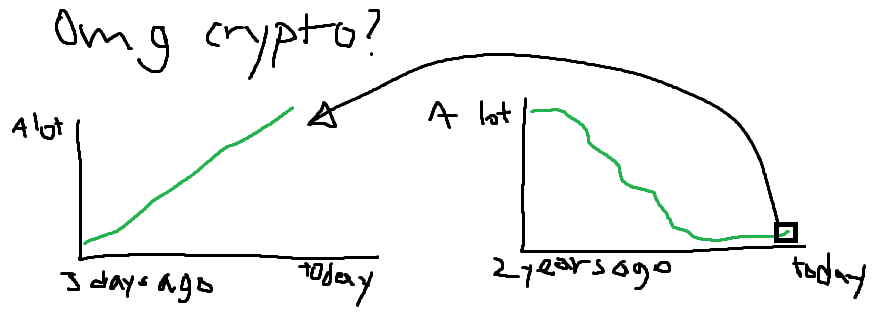 Omg crypto?
A lot
3 days ago
today
A lot
2 years ago
today